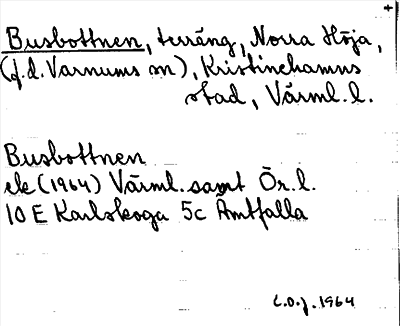 +
Busbottnen, terräng, Norra Höja,
(f.d. Varnums sn), Kristinehamns
stad, Värml. l.
Busbottnen
ek (1964) Värml. samt Ör. l.
10 E Karlskoga 5c Åmtfalla
C.O.J. 1964